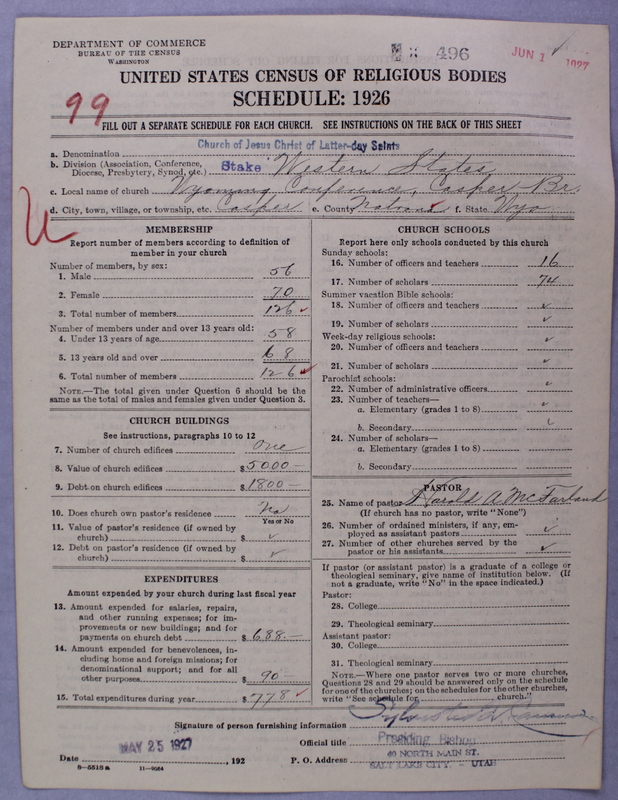 DEPARTMENT OF COMMERCE
BUREAU OF THE CENSUS
WASHINGTON
496
JUN 1 1927
UNITED STATES CENSUS OF RELIGIOUS BODIES
SCHEDULE: 1926
99
FILL OUT A SEPARATE SCHEDULE FOR EACH CHURCH. SEE INSTRUCTIONS ON THE BACK OF THIS SHEET
a. Denomination Church of Jesus Christ of Latter-day Saints
b. Division (Association, Conference, Diocese, Presbytery, Synod, etc.) Stake Western States
c. Local name of church Wyoming Conference, Casper Br.
d. City, town, village, or township, etc. Casper e. County Natrona f. State Wyo
MEMBERSHIP
Report number of members according to definition of
member in your church
Number of members, by sex:
1. Male 56
2. Female 70
3. Total number of members 126 ✓
Number of members under and over 13 years old:
4. Under 13 years of age 58
5. 13 years old and over 68
6. Total number of members 126 ✓
NOTE.—The total given under Question 6 should be the
same as the total of males and females given under Question 3.
CHURCH BUILDINGS
See instructions, paragraphs 10 to 12
7. Number of church edifices One
8. Value of church edifices $5000—
9. Debt on church edifices $1800—
10. Does church own pastor's residence No
Yes or No
11. Value of pastor's residence (if owned by
church) $ ✓
12. Debt on pastor's residence (if owned by
church) $ ✓
EXPENDITURES
Amount expended by your church during last fiscal year
13. Amount expended for salaries, repairs,
and other running expenses; for im-
provements or new buildings; and for
payments on church debt $ 688.—
14. Amount expended for benevolences, in-
cluding home and foreign missions; for
denominational support; and for all
other purposes $ 90—
15. Total expenditures during year $ 778 ✓
CHURCH SCHOOLS
Report here only schools conducted by this church
Sunday schools:
16. Number of officers and teachers 16
17. Number of scholars 74
Summer vacation Bible schools:
18. Number of officers and teachers ✓
19. Number of scholars ✓
Week-day religious schools:
20. Number of officers and teachers ✓
21. Number of scholars ✓
Parochial schools:
22. Number of administrative officers ✓
23. Number of teachers—
a. Elementary (grades 1 to 8) ✓
b. Secondary ✓
24. Number of scholars—
a. Elementary (grades 1 to 8)
b. Secondary
PASTOR
25. Name of pastor Harold A McFarland
(If church has no pastor, write "None")
26. Number of ordained ministers, if any, em-
ployed as assistant pastors ✓
27. Number of other churches served by the
pastor or his assistants ✓
If pastor (or assistant pastor) is a graduate of a college or
theological seminary, give name of institution below. (If
not a graduate, write "No" in the space indicated.)
Pastor:
28. College
29. Theological seminary
Assistant pastor:
30. College
31. Theological seminary
NOTE.—Where one pastor serves two or more churches,
Questions 28 and 29 should be answered only on the schedule
for one of the churches; on the schedules for the other churches,
write "See schedule for church."
Signature of person furnishing information
Official title Presiding Bishop
Date MAY 25 1927, 192 P. O. Address 40 NORTH MAIN ST.
SALT LAKE CITY - UTAH
8—5518a 11—9064